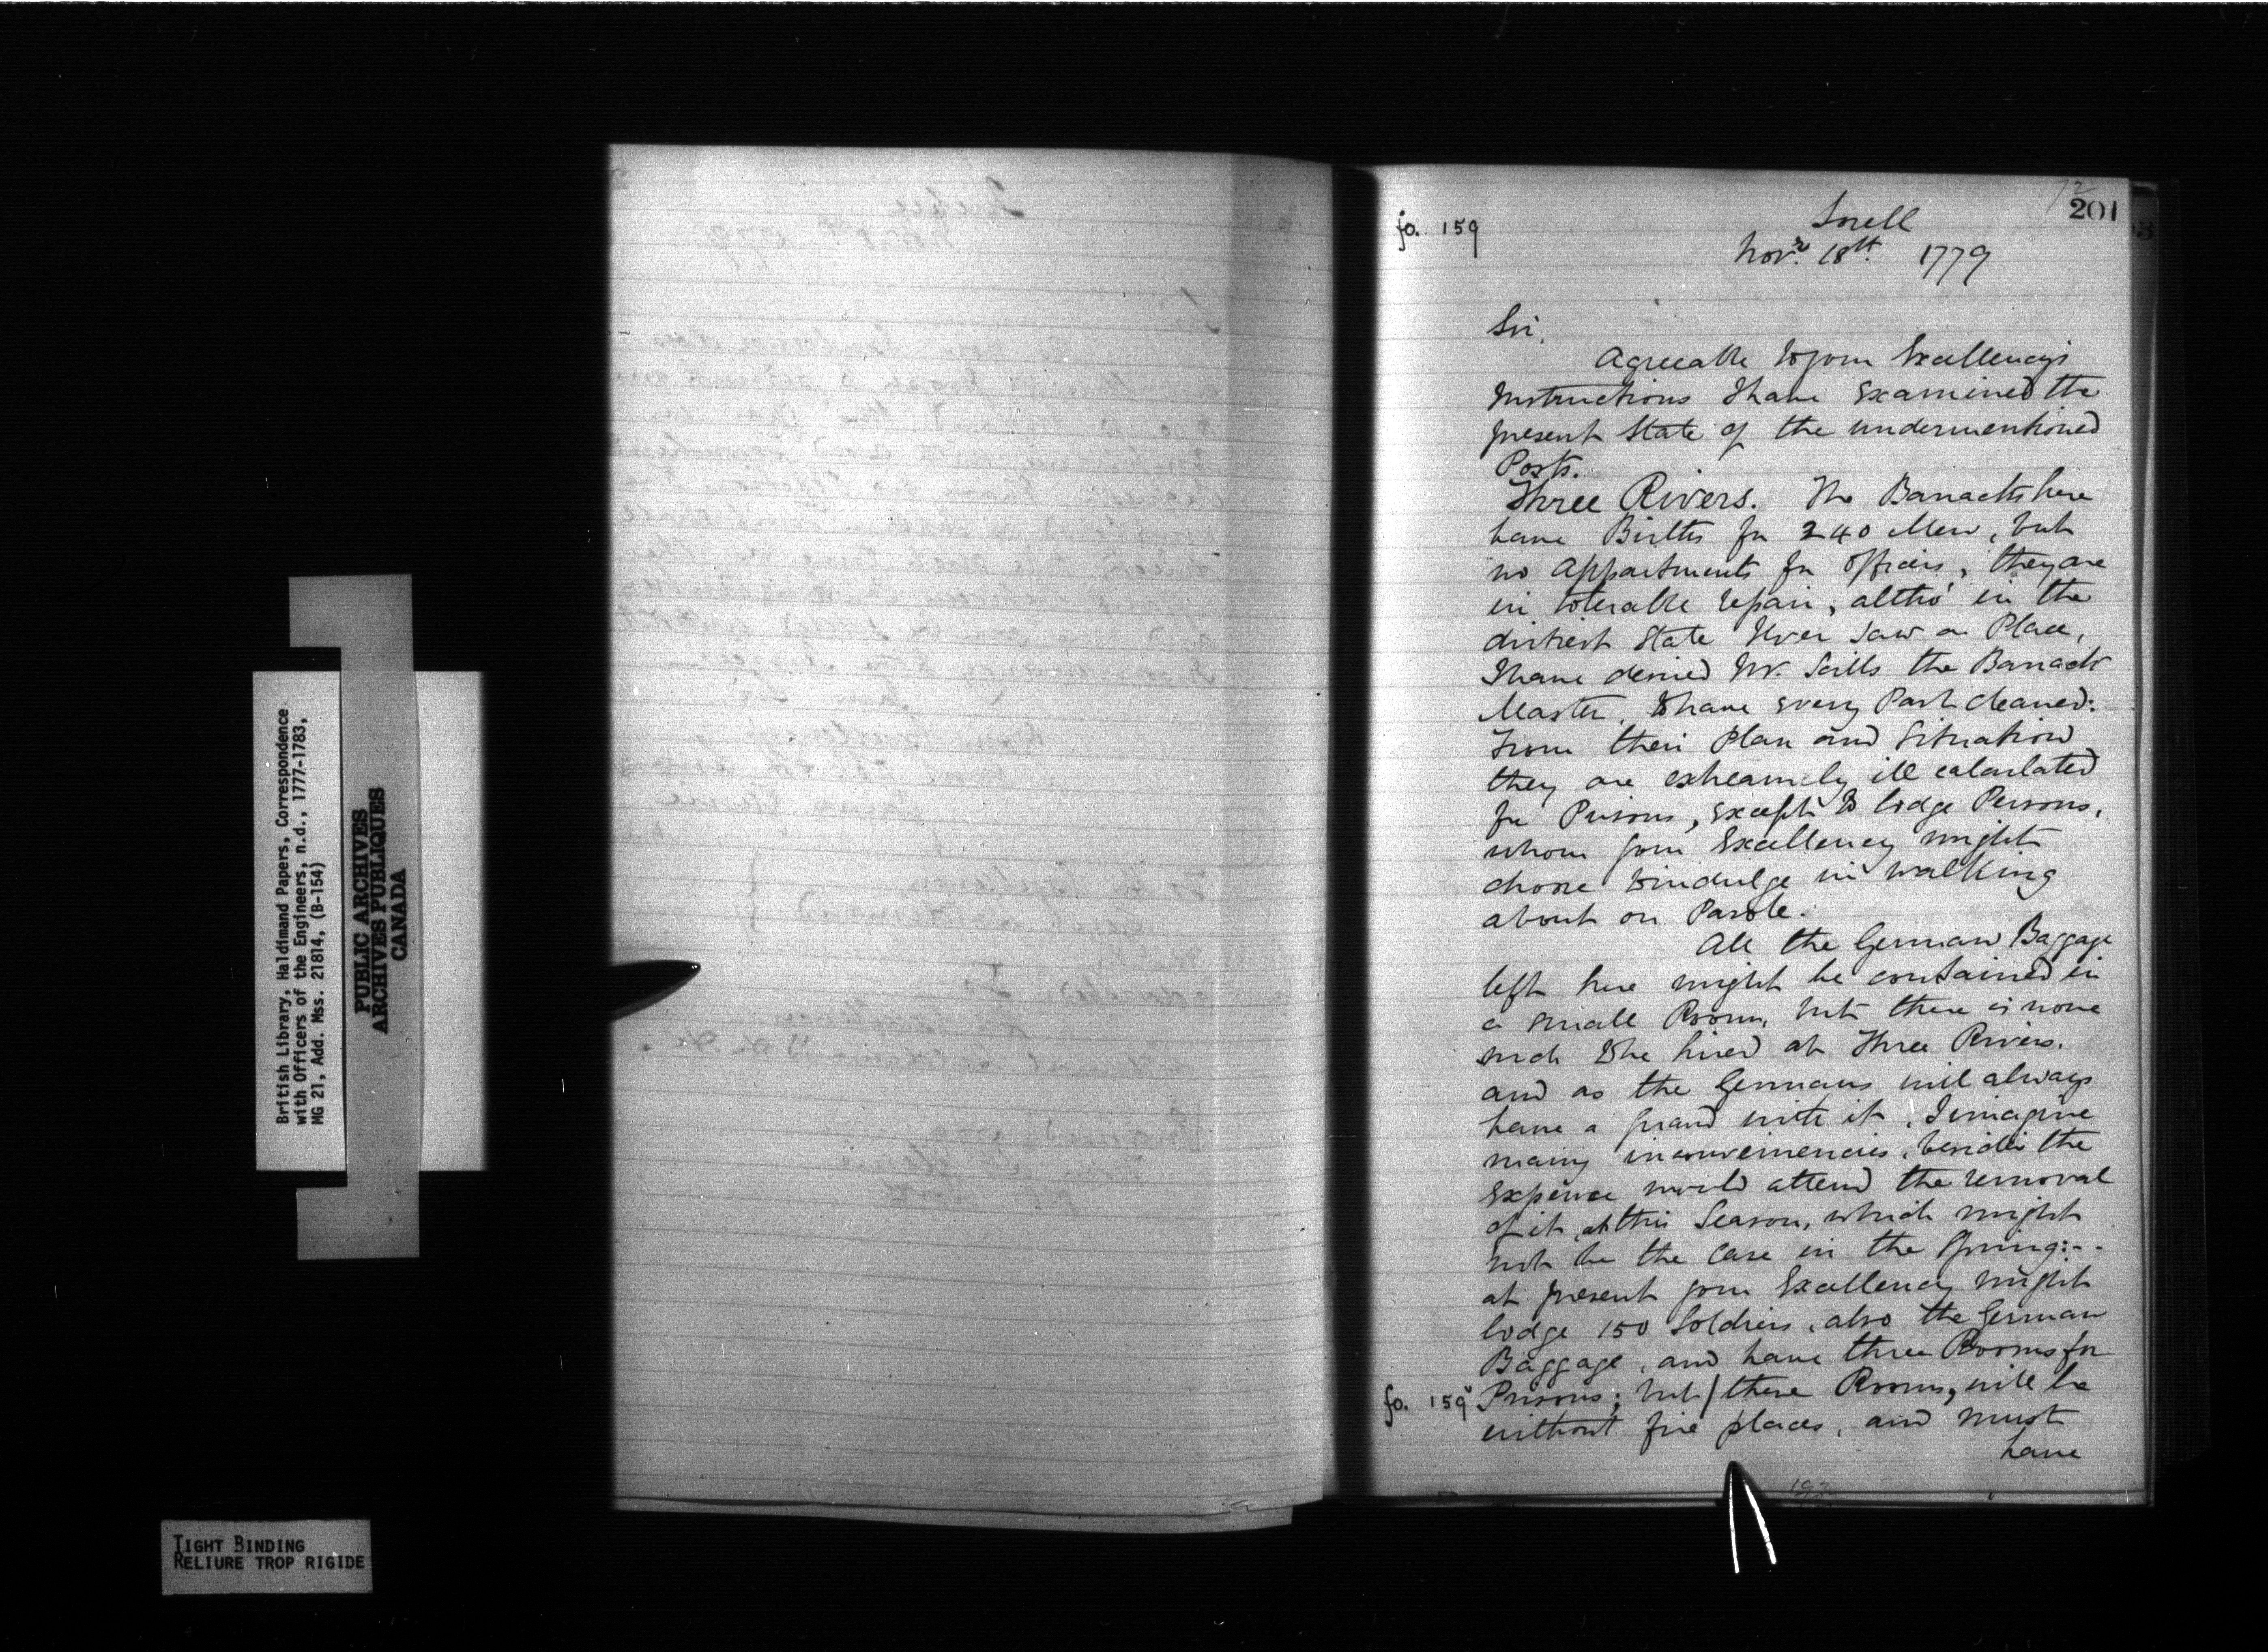 British Library, Haldimand Papers, Correspondence
with Officers of the Engineers, n.d., 1777-1783,
MG 21, Add. Mss. 21814, (B-154)
PUBLIC ARCHIVES
ARCHIVES PUBLIQUES
CANADA
TIGHT BINDING
RELIURE TROP RIGIDE
72
201
fo. 159
Sorell
Novr. 18th. 1779
Sir,
Agreeable to your Excellency's
Instructions I have Examined the
present State of the undermentioned
Posts.
Three Rivers. The Barracks here
have Births for 240 Men, but
no Appartments for Officers, they are
in tolerable repair, altho' in the
dirtiest State I ever saw a Place,
I have desired Mr. Sills the Barrack
Master, to have every Part cleaned:
From their Plan and Situation
they are extreamely ill calculated
for Prisons, except to lodge Persons,
whom your Excellency might
choose to indulge in walking
about on Parole.
All the German Baggage
left here might be contained in
a small Room, but there is none
such to be hired at Three Rivers.
and as the Germans will always
have a guard with it, I imagine
many inconveniencies, besides the
Expence would attend the removal
of it, at this Season, which might
not be the case in the Spring:--
at present your Excellency might
lodge 150 Soldiers, also the German
Baggage, and have three Rooms for
fo. 159v Prisons; but/these Rooms, will be
without fire places, and must
have